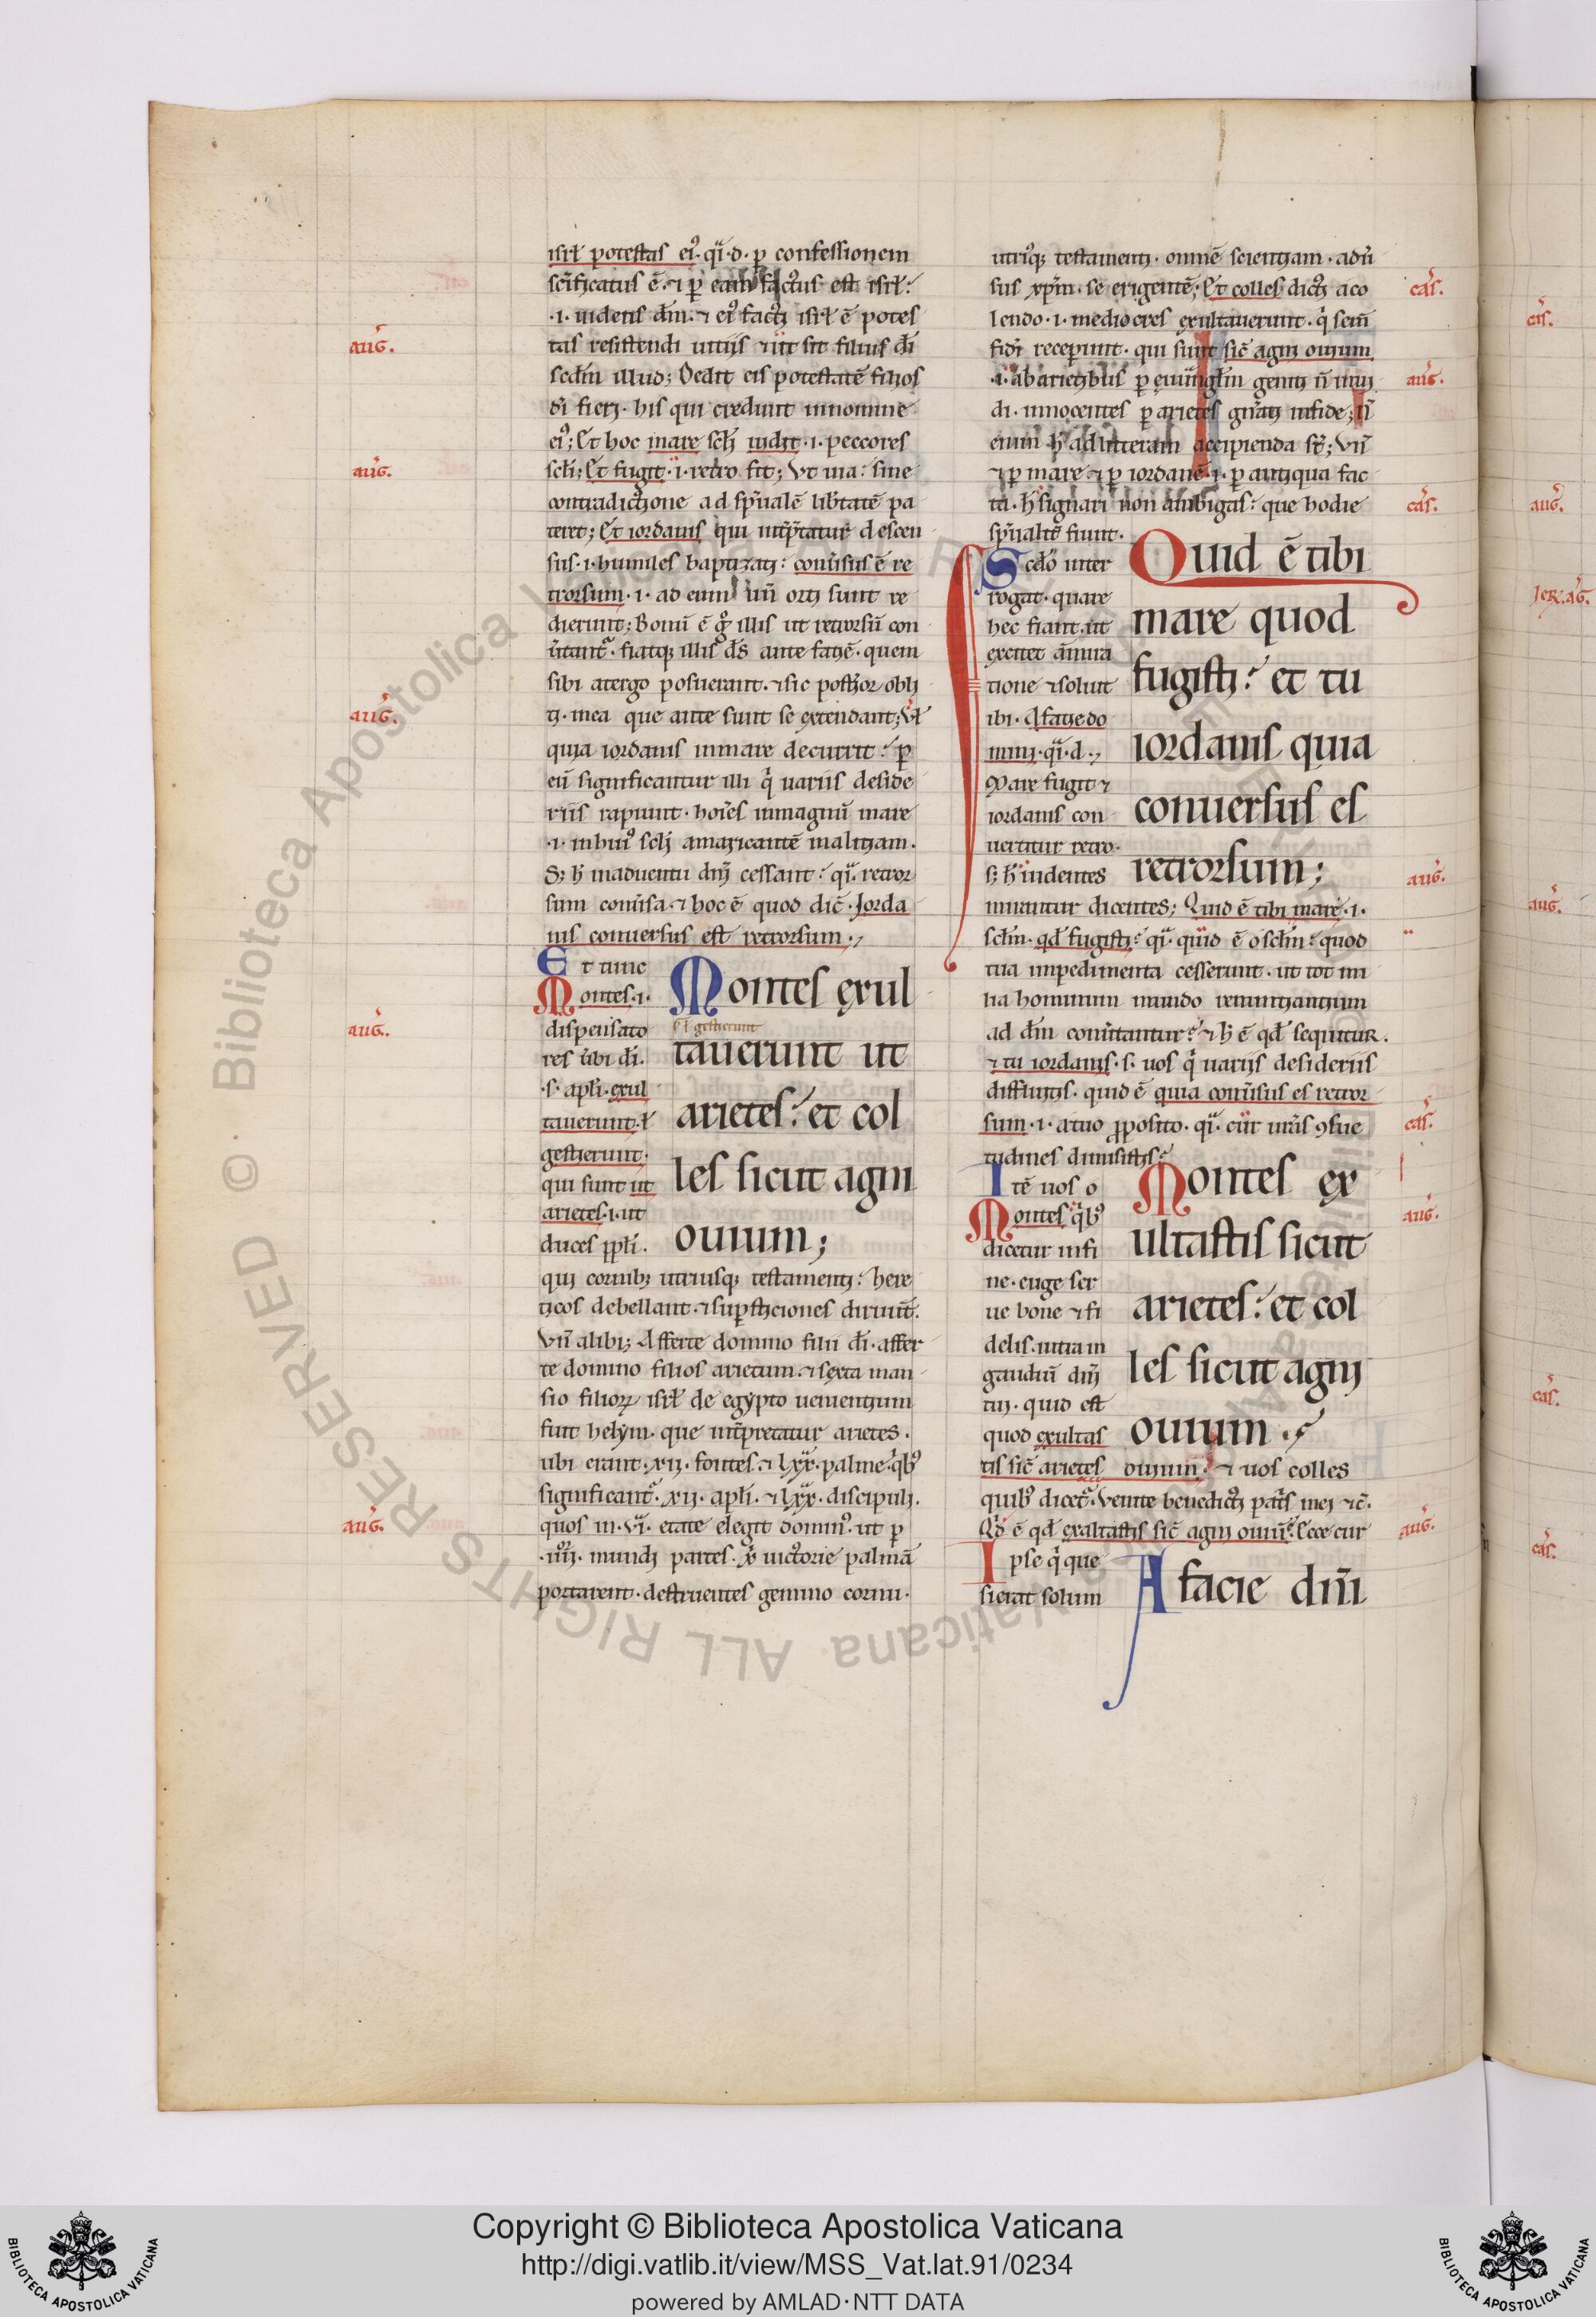 isrł potestas ei⁹. qͥ. d. ꝑ confessionem
scīficatus ē. ⁊ ꝑ eam factus est isrł:
.i. uidens dm̄. ⁊ ei⁹ factꝫ isrł ē potes
tas resistendi uitijs ⁊ ut sit filius di
scdm̄ illud; Dedit eis potestatē filios
di fieri. his qui credunt innomine
ei⁹; Et hoc mare scłi uidit .i. peccores
scłi; Et fugit .i. retro fit; Vt uia: sine
contradictione ad spūalē lib̄tatē pa
teret; Et iordanis qui int̄p̄tatur descen
sus .i. humiles baptizati: conūsus ē re
trorsum .i. ad eum un̄ orti sunt re
dierunt; Bonū ē g̊ illis ut retrorsū con
ūtant᷑. fiatqꝫ illis ds̄ ante faciē. quem
sibi atergo posuerant. ⁊ sic posteriorꝫ obli
ti. inea que ante sunt se extendant; Vł
quia iordanis inmare decurrit: ꝑ
eū significantur illi q̇ uariis deside
riis rapiunt. hoīes inmagnū mare
.i. inhui⁹ scłi amaricantē malitiam.
S; h̄ inaduentu dn̄i cessant: qͥ. retror
sum conūsa. ⁊ hoc ē quod dic̄. Iorda
nis conuersus est retrorsum.,
Et tunc
Montes .i.
dispensato
res ūbi di.
.s. apłi. exul
tauerunt. ł
gestierunt.
qui sunt ut
arietes .i. ut
duces ppłi.
Montes exul
s. ł gestierunt
tauerunt ut
arietes: et col
les sicut agni
ouium;
qui cornibꝫ utriusqꝫ testamenti: here
ticos debellant. ⁊ suꝑsticiones diruūt.
Vn̄ alibi; Afferte domino filii di. affer
te domino filios arietum. ⁊ sexta man
sio filiorꝝ isrł de egypto uenientium
fuit helym. que int̄pretatur arietes.
ubi erant .xii. fontes. ⁊ lxx. palme. qͥb⁹
significant᷑ .xii. apłi. ⁊ lxx. discipuli.
quos in .vi. etate elegit domin⁹. ut ꝑ
.iiii. mundi partes. xͥ uictorie palmā
portarent. destruentes gemino cornu.
utriusqꝫ testamenti. omnē scientiam. adū
sus xp̄m. se erigentē; Et colles dicti a co
lendo .i. mediocres exultauerunt. q̇ sem̄
fidi receperunt. qui sunt sic̄ agni ouium
.i. ab arietibus ꝑ euuangłm geniti n̄ mun
di. innocentes ꝑ arietes gr̄ati infide; N̄
enim h̄ ad litteram accipienda st̄; Vn̄
⁊ ꝑ mare ⁊ ꝑ iordanē .i. ꝑ antiqua fac
ta. h̄ signari non ambigas: que hodie
spūalit̄ fiunt.
Scdo inter
rogat. quare
hec fiant. ut
excitet āmira
tione ⁊ soluit
ibi. A facie do
mini. qͥ. d.,
Mare fugit ⁊
iordanis con
uertitur retro.
s; h̄ uidentes
Quid ē tibi
mare quod
fugisti: et tu
iordanis quia
conuersus es
retrorsum;
mirantur dicentes; Quid ē tibi mare .i.
scłm. qd̄ fugisti: qͥ. quid ē o scłm: quod
tua impedimenta cesserunt. ut tot mi
lia hominum mundo renuntiantium
ad dm̄ conūtantur: ⁊ h̄ ē qd̄ sequitur.
⁊ tu iordanis .s. uos q̇ uarijs desideriis
diffluitis. quid ē quia conūsus es retror
sum .i. a tuo ꝓposito. qͥ. cur urās ꝯsue
tudines dimisistis:
Itē uos o
Montes qͥb⁹
dicetur infi
ne. euge ser
ue bone ⁊ fi
delis. intra in
gaudiū dn̄i
tui. quid est
quod exultas
Montes ex
ultastis sicut
arietes: et col
les sicut agni
ouium.
tis sic̄ arietes ouium: ⁊ uos colles
quib⁹ dicet᷑. Venite benedicti pat̄s mei ⁊c̄.
Qd̄ ē qd̄ exaltastis sic̄ agni ouiū: Ecce cur
Ipse q̇ que
sierat soluit
A facie dn̄i
aug̃.
aug̃.
aug̃.
aug̃.
aug̃.
cas̃.
aug̃.
cas̃.
aug̃.
cas̃.
aug̃.
aug̃.
cas̃.
aug̃.
Ier. ag̃.
aug̃.
cas̃.
cas̃.
© Biblioteca Apostolica Vaticana ALL RIGHTS RESERVED
Copyright © Biblioteca Apostolica Vaticana
http://digi.vatlib.it/view/MSS_Vat.lat.91/0234
powered by AMLAD·NTT DATA
BIBLIOTECA APOSTOLICA VATICANA
BIBLIOTECA APOSTOLICA VATICANA